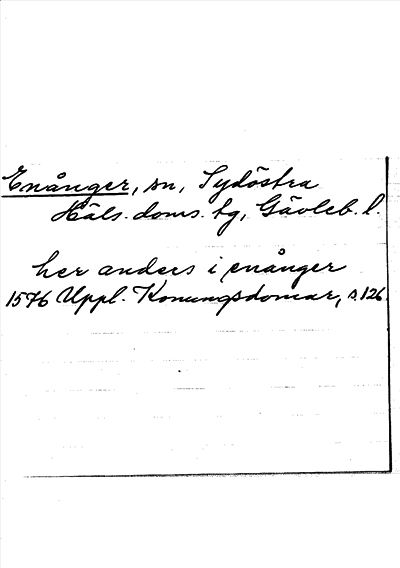 Enånger, sn, Sydöstra
Häls. doms. tg, Gävleb. l.
her anders i enånger
1576 Uppl. Konungsdomar, s. 126